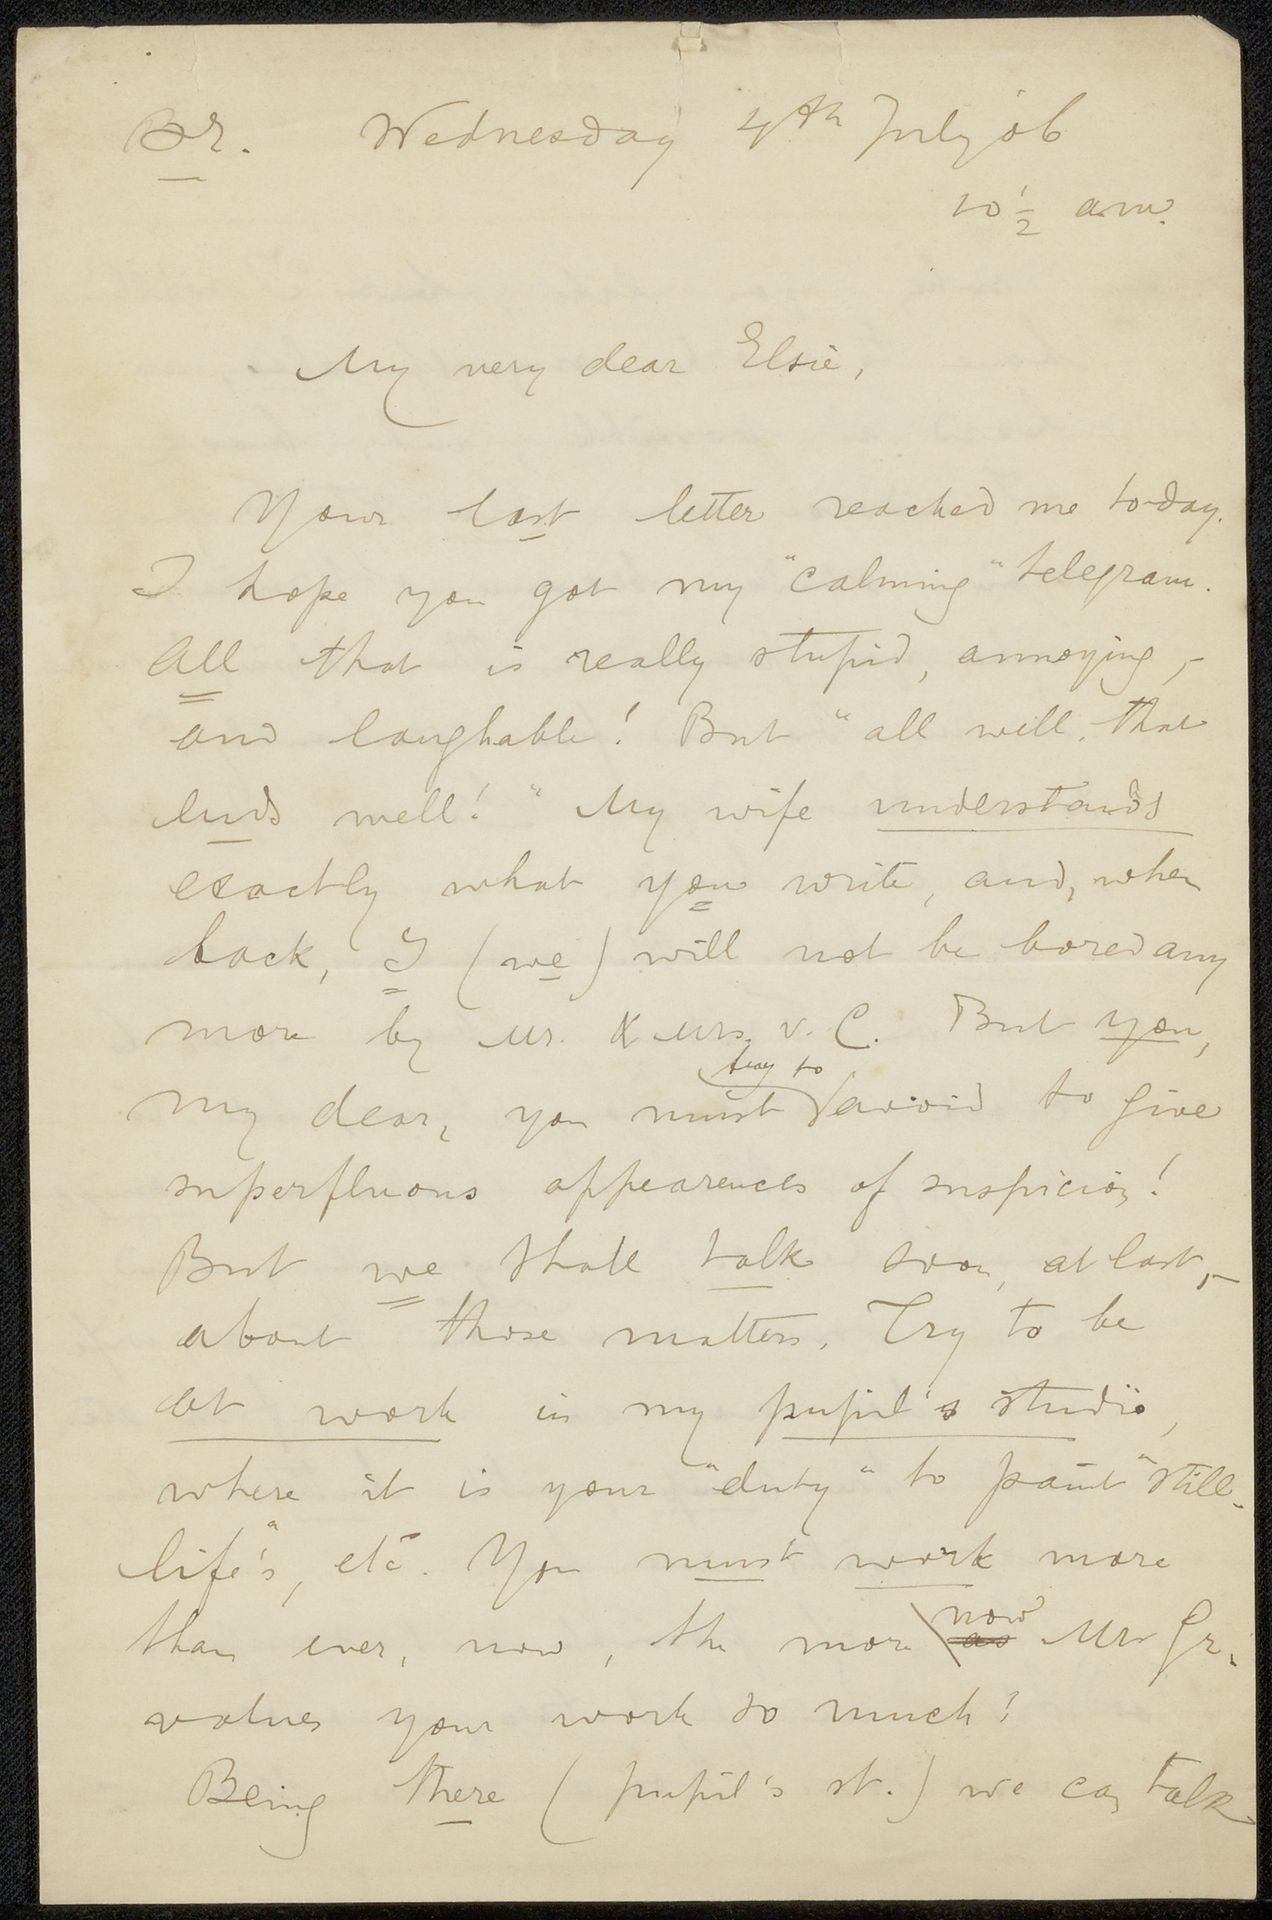 Br. Wednesday 4th July 06
10 1/2 a.m.
My very dear Elsie,
Your last letter reached me to-day.
I hope you got my "calming" telegram.
All that is really stupid, annoying,-
and laughable! But "all well, that
ends well!" My wife understands
exactly what you write, and, when
back, I (we) will not be bored any
more by Mr. & Mrs. v. C. But you,
my dear, you must try to avoid to give
superfluous appearences of suspicion!
But we shall talk soon, at last,-
about those matters. Try to be
at work in my pupil's studio,
where it is your "duty" to paint "still-
life's", etc. You must work more
than ever, now, the more now Mr Gr.
values your work so much!
Being there (pupil's st.) we can talk